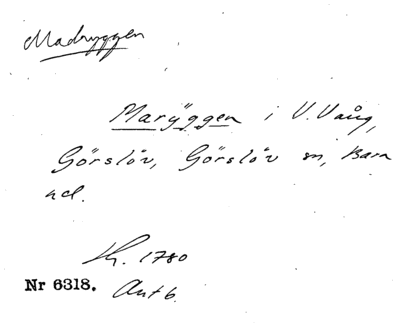 Madryggen
Maryggen i V. Vång,
Görslöv, Görslöv sn, Bara
hd.
1780
Nr 6318. Akt 6.